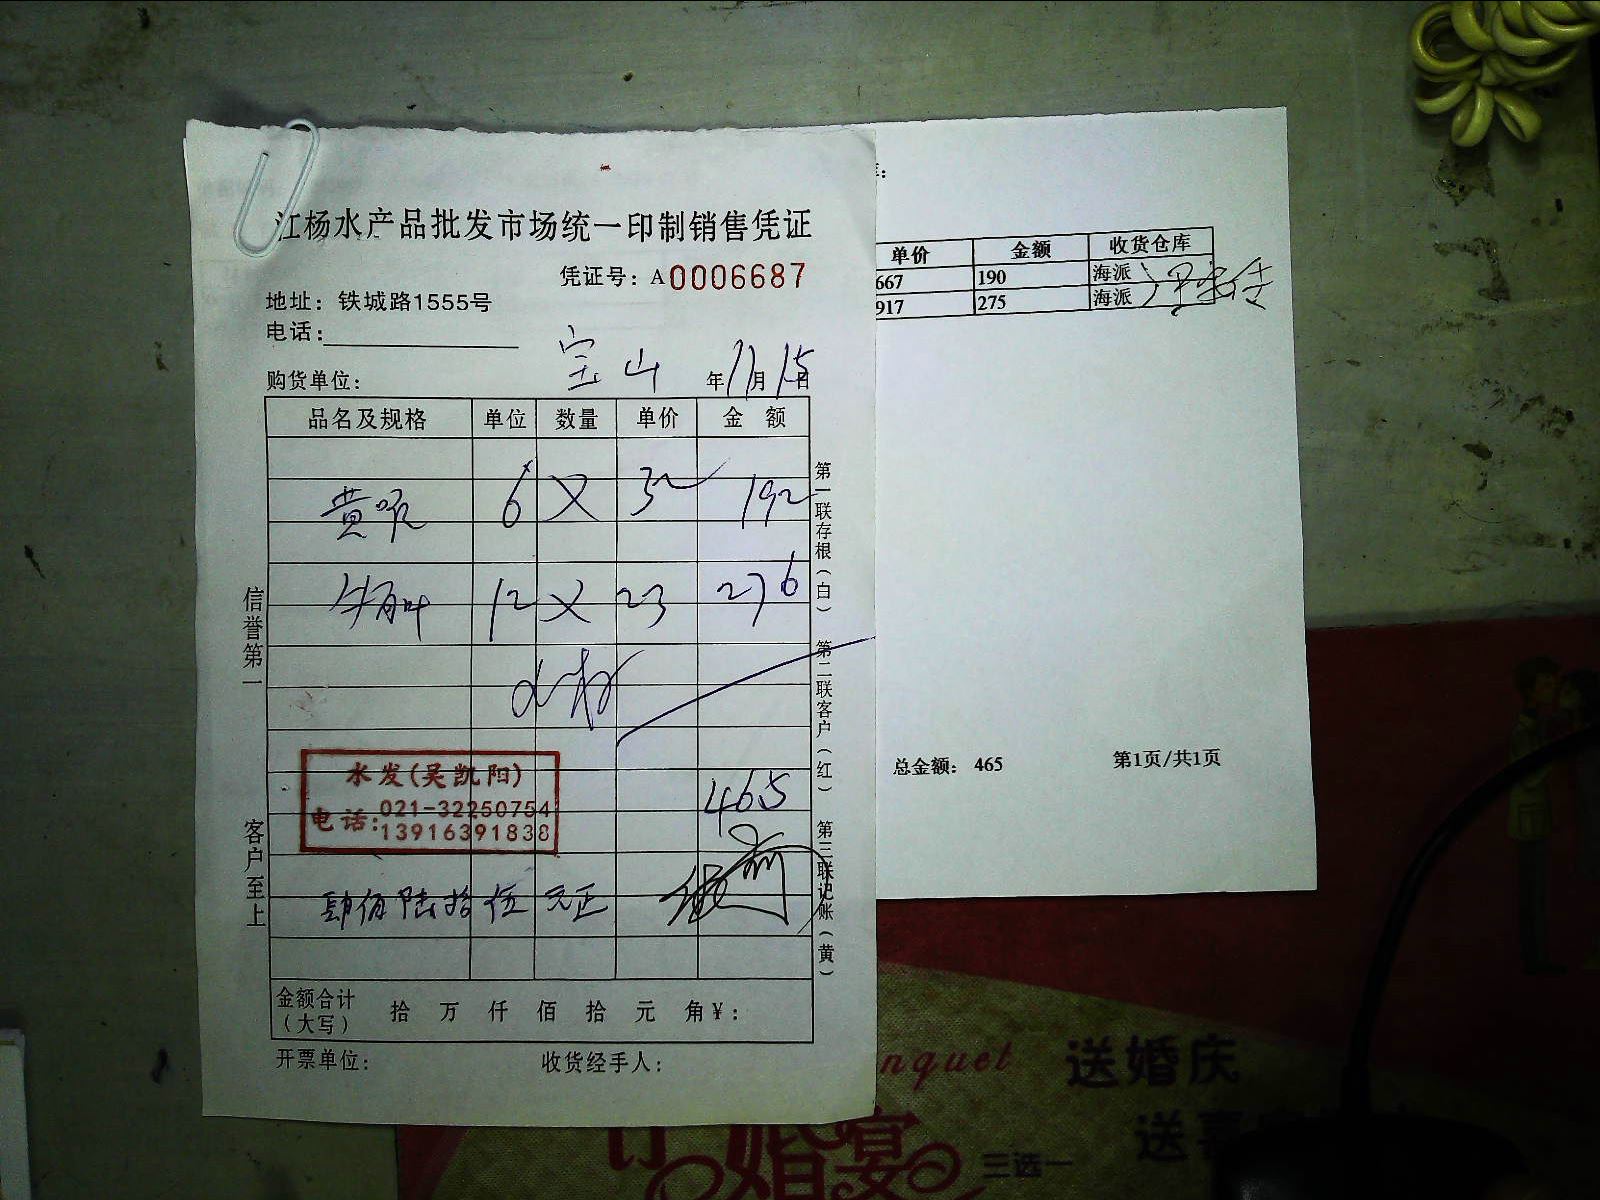 江杨水产品批发市场统一印制销售凭证
凭证号：A0006687
地址：铁城路1555号
电话：
宝山
购货单位： 年11月15日
品名及规格 单位 数量 单价 金 额
黄喉 6 × 32 192
牛百叶 12 × 23 276
465
水发(吴凯阳)
电话：021-32250754
13916391838
肆佰陆拾伍元正
金额合计（大写） 拾 万 仟 佰 拾 元 角￥：
开票单位： 收货经手人：
信誉第一 客户至上
第一联存根（白） 第二联客户（红） 第三联记账（黄）
单价 金额 收货仓库
667 190 海派
917 275 海派
总金额： 465 第1页/共1页
nquet 送婚庆
婚宴
三选一